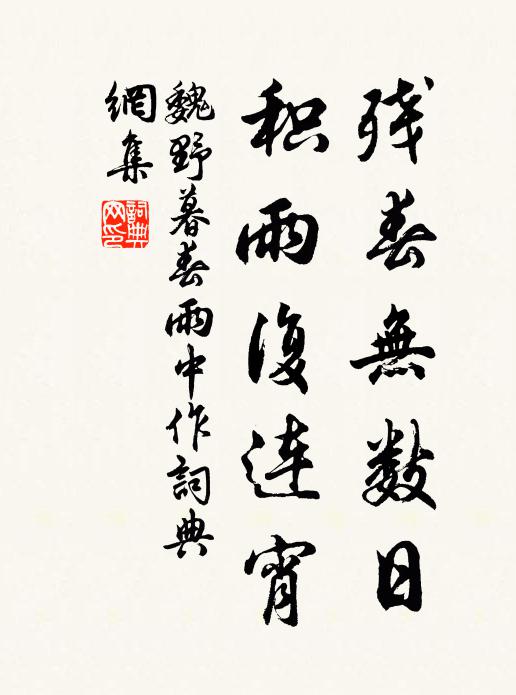 残春無数日
积雨復连宵
魏野暮春雨中作詞典
網集
詞典
网印